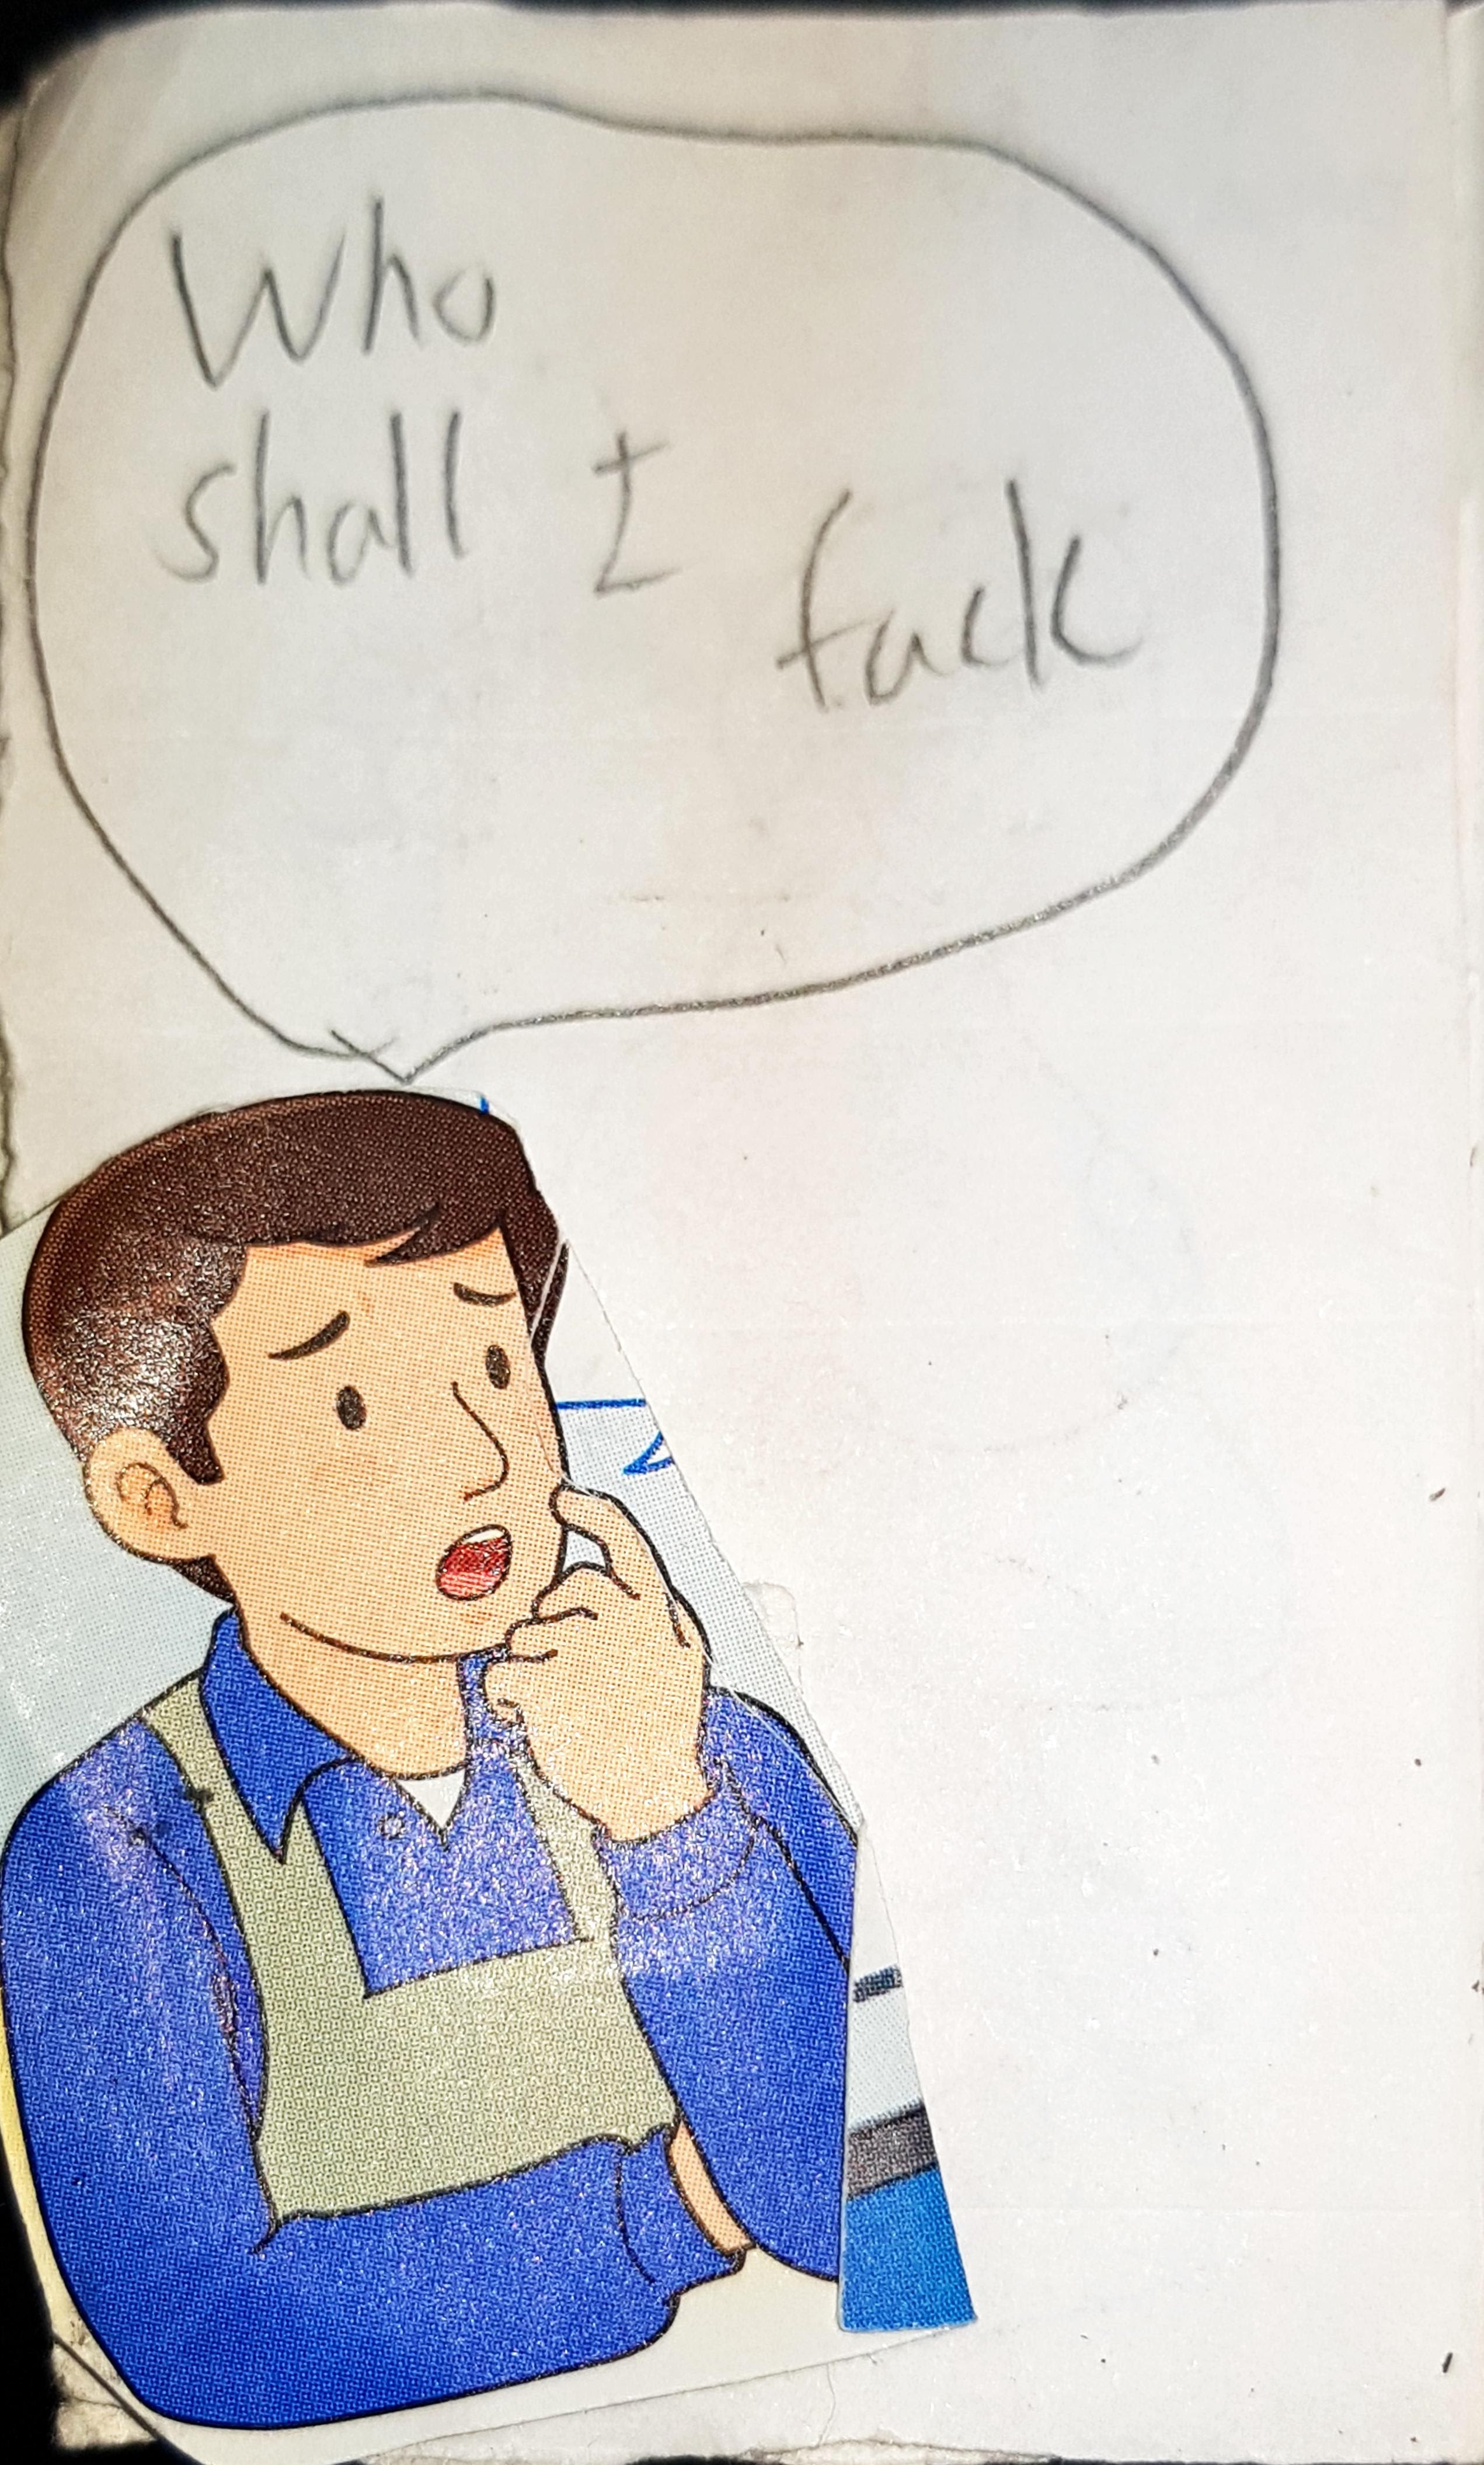 Who
shall I fuck